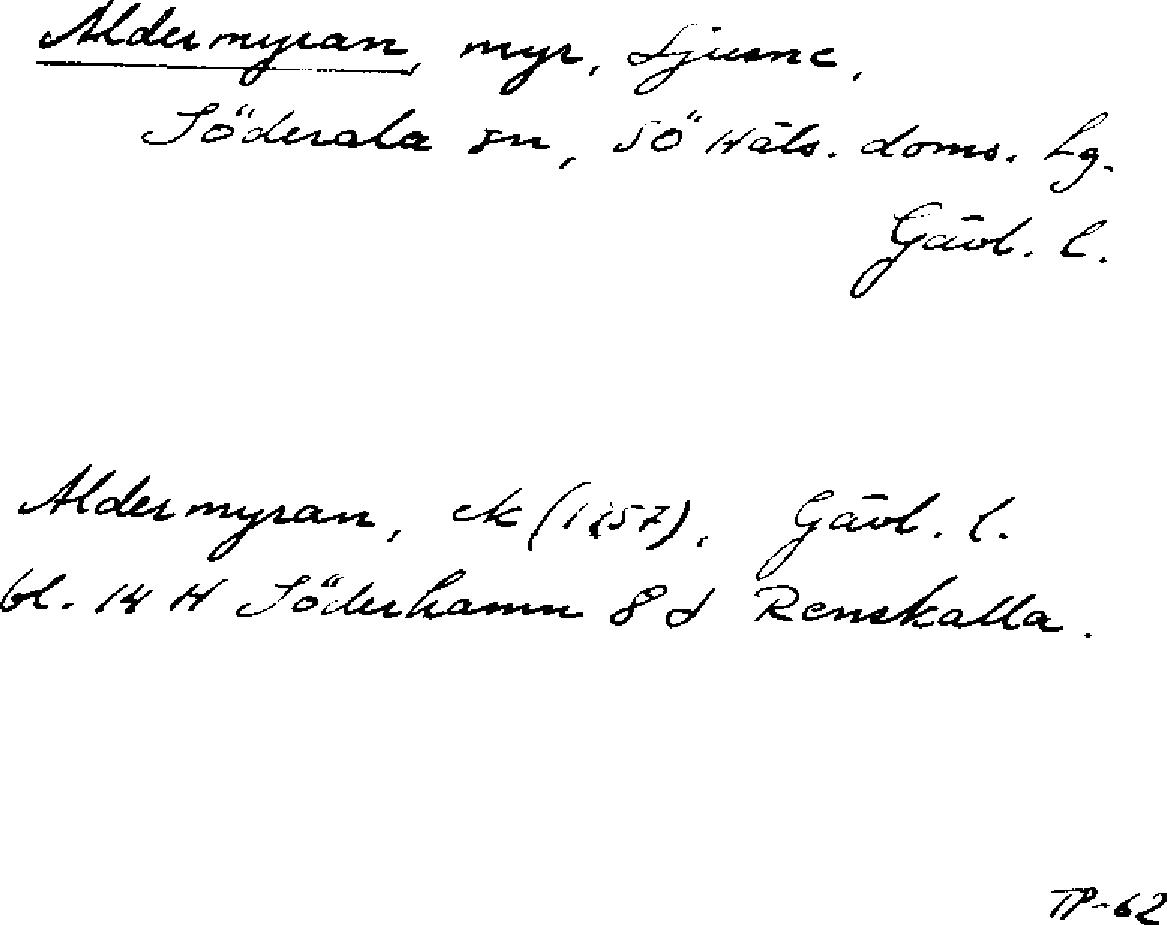 Aldermyran, myr, Ljusne,
Söderala sn, SÖ Häls. doms. lg.
Gävl. l.
Aldermyran, ek (1957), Gävl. l.
bl. 14 H Söderhamn 8 d Renskalla.
TP-62